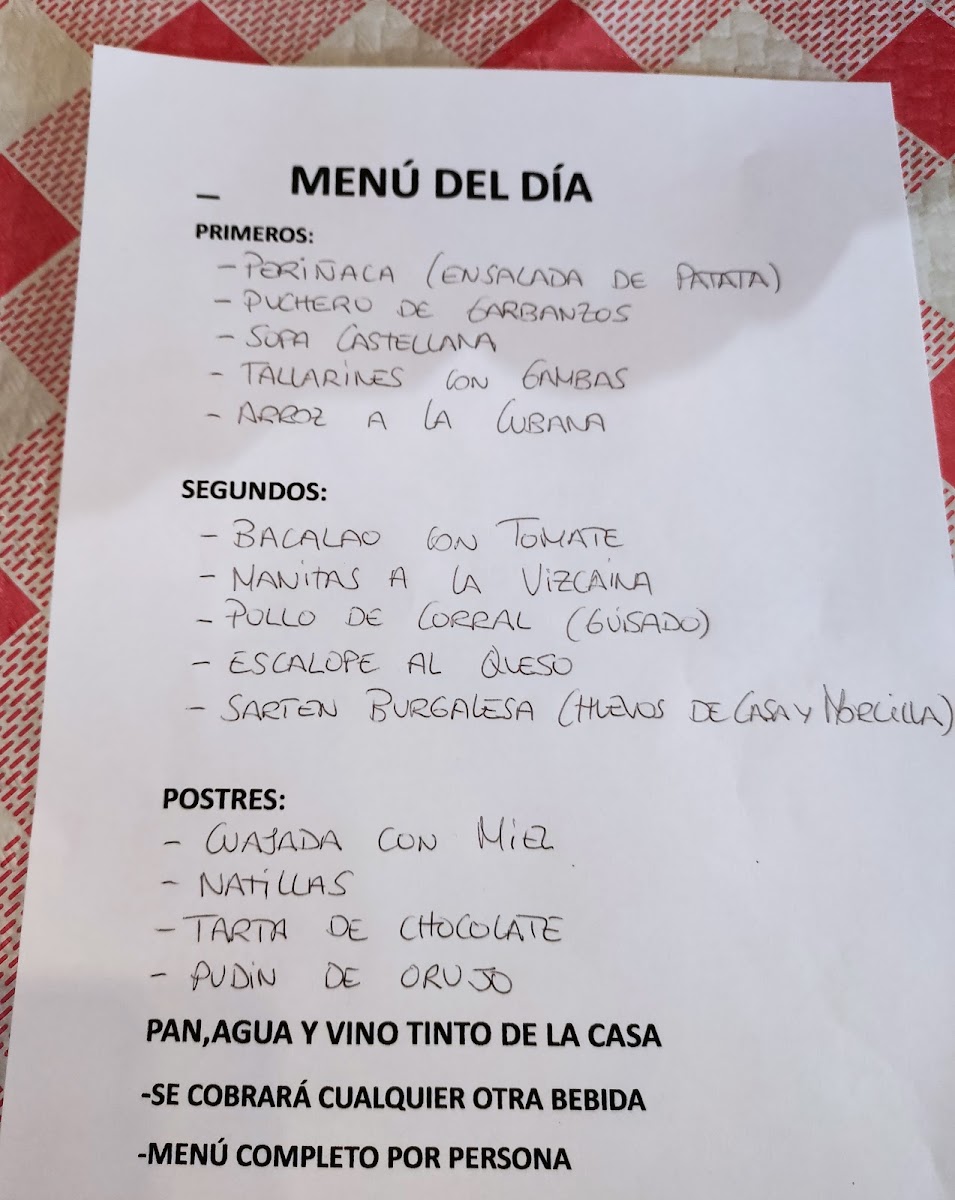 MENÚ DEL DÍA
PRIMEROS:
- PERIÑACA (ENSALADA DE PATATA)
- PUCHERO DE GARBANZOS
- SOPA CASTELLANA
- TALLARINES CON GAMBAS
- ARROZ A LA CUBANA
SEGUNDOS:
- BACALAO CON TOMATE
- MANITAS A LA VIZCAINA
- POLLO DE CORRAL (GUISADO)
- ESCALOPE AL QUESO
- SARTEN BURGALESA (HUEVOS DE CASA Y MORCILLA)
POSTRES:
- CUAJADA CON MIEL
- NATILLAS
- TARTA DE CHOCOLATE
- PUDIN DE ORUJO
PAN,AGUA Y VINO TINTO DE LA CASA
-SE COBRARÁ CUALQUIER OTRA BEBIDA
-MENÚ COMPLETO POR PERSONA